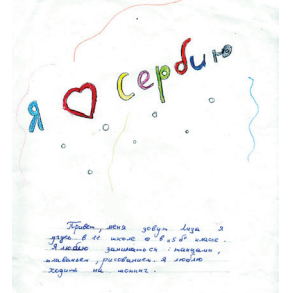 Я ❤ сербию
Привет, меня зовут Лиза я
учусь в 11 школе в «5б» классе.
Я люблю заниматься: танцами,
плаваньем, рисованием. Я люблю
ходить на шопинг.